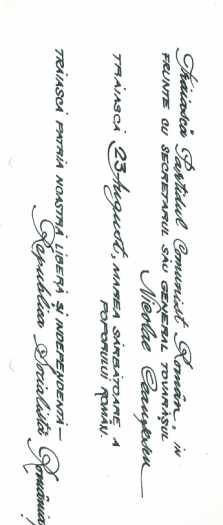 Trăiască Partidul Comunist Român, în
FRUNTE CU SECRETARUL SĂU GENERAL TOVARĂȘUL
Nicolae Ceaușescu
TRĂIASCĂ 23 August, MAREA SĂRBĂTOARE A
POPORULUI ROMÂN.
TRĂIASCĂ PATRIA NOASTRĂ LIBERĂ ȘI INDEPENDENTĂ —
Republica Socialistă România!